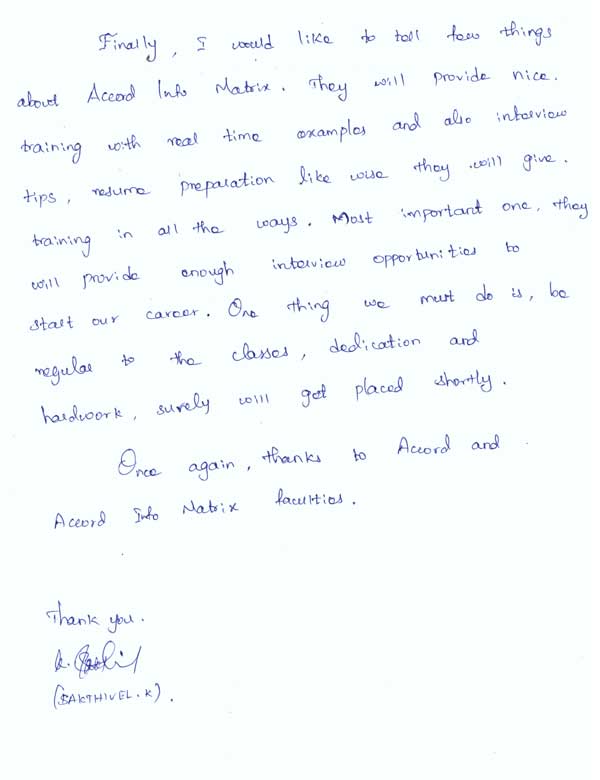 Finally, I would like to tell few things
about Accord Info Matrix. They will provide nice.
training with real time examples and also interview
tips, resume preparation like wise they will give.
training in all the ways. Most important one, they
will provide enough interview opportunities to
start our career. One thing we must do is, be
regular to the classes, dedication and
hardwork, surely will get placed shortly.
Once again, thanks to Accord and
Accord Info Matrix faculties.
Thank you.
(SAKTHIVEL.K).